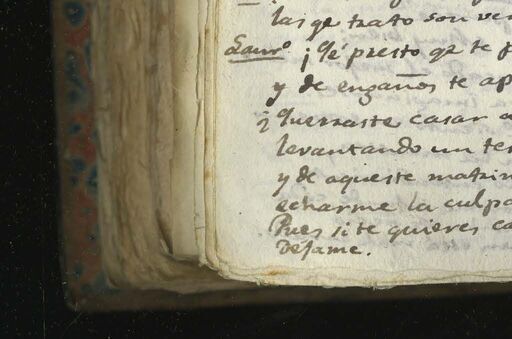 las qe trato son ver
Laurº ¡Qé presto qe te p
y de engaños te ap
¿Querraste casar a
levantando un tes
y de aqueste matrim
echarme la culpa
Pues si te quieres ca
Dejame.